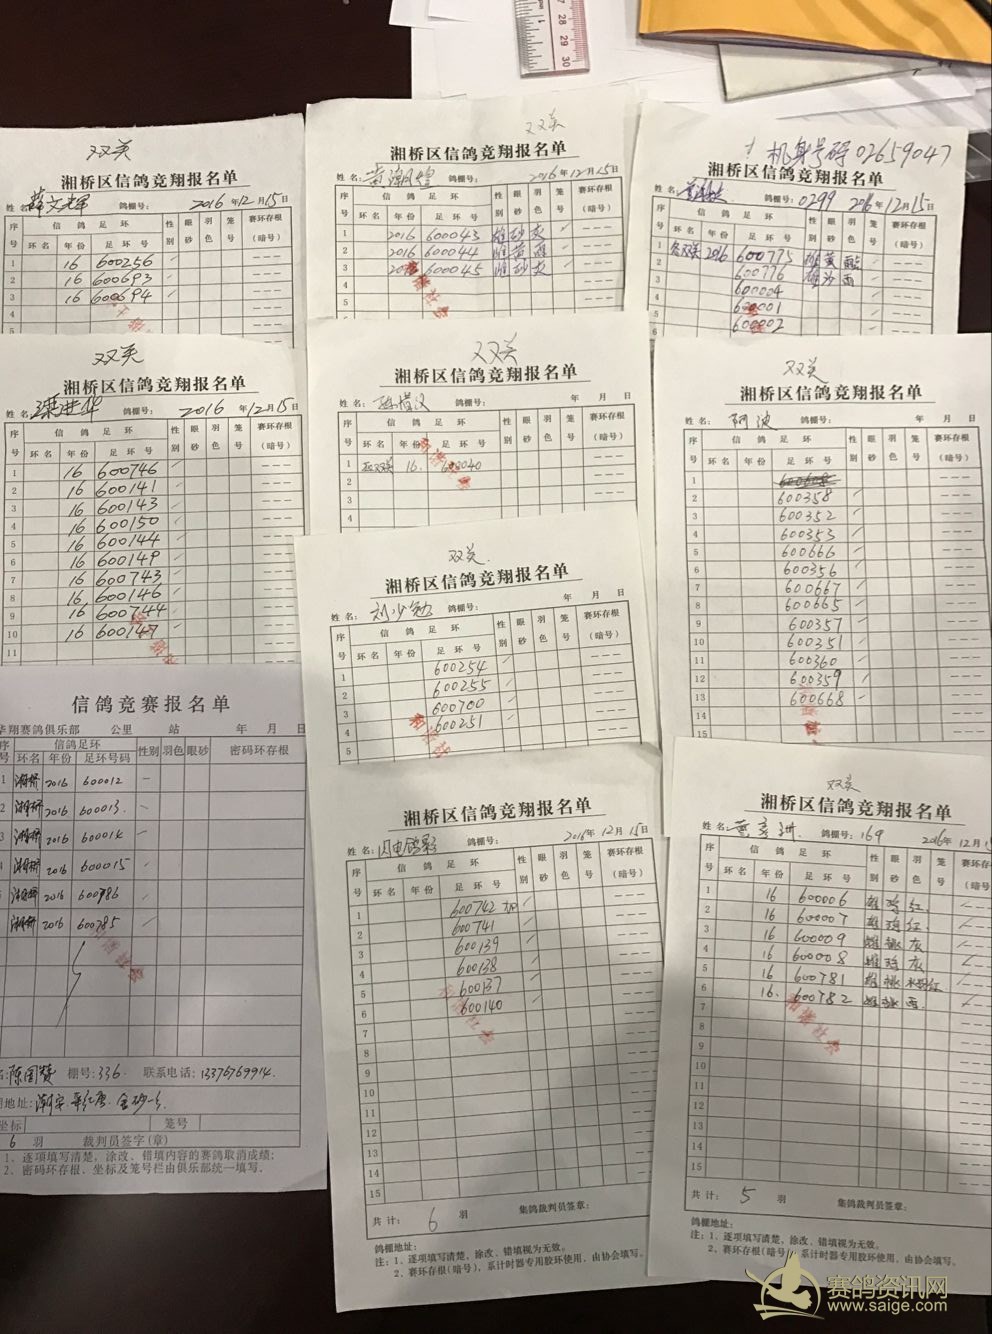 双关
湘桥区信鸽竞翔报名单
姓名: 薛文辉 鸽棚号: 2016年12月15日
序号 信鸽足环 性别 眼砂 羽色 笼号 赛环存根(暗号)
环名 年份 足环号
1 16 600256
2 16 600693
3 16 600694
4
5
双关
湘桥区信鸽竞翔报名单
姓名: 黄潮煌 鸽棚号: 2016年12月15日
序号 信鸽足环 性别 眼砂 羽色 笼号 赛环存根(暗号)
环名 年份 足环号
1 2016 600043 雄 砂 灰
2 2016 600044 雌 黄
3 2016 600045 雌 砂 灰
4
5
机身号码 02659047
湘桥区信鸽竞翔报名单
姓名: 鸽棚号: 0299 2016年12月15日
序号 信鸽足环 性别 眼砂 羽色 笼号 赛环存根(暗号)
环名 年份 足环号
1 2016 600775 雄 黄
2 600776 雄 沙 雨
3 600004
4 600001
5 600002
6
双关
湘桥区信鸽竞翔报名单
姓名: 梁进华 鸽棚号: 2016年12月15日
序号 信鸽足环 性别 眼砂 羽色 笼号 赛环存根(暗号)
环名 年份 足环号
1 16 600746
2 16 600141
3 16 600143
4 16 600150
5 16 600144
6 16 600149
7 16 600743
8 16 600146
9 16 600744
10 16 600147
11
双关
湘桥区信鸽竞翔报名单
姓名: 陈惜汉 鸽棚号: 年 月 日
序号 信鸽足环 性别 眼砂 羽色 笼号 赛环存根(暗号)
环名 年份 足环号
1 双关 16. 600040
2
3
4
双关
湘桥区信鸽竞翔报名单
姓名: 阿波 鸽棚号: 年 月 日
序号 信鸽足环 性别 眼砂 羽色 笼号 赛环存根(暗号)
环名 年份 足环号
1
2 600358
3 600352
4 600353
5 600666
6 600356
7 600667
8 600665
9 600357
10 600351
11 600360
12 600359
13 600668
14
双关.
湘桥区信鸽竞翔报名单
姓名: 刘少 鸽棚号: 年 月 日
序号 信鸽足环 性别 眼砂 羽色 笼号 赛环存根(暗号)
环名 年份 足环号
1 600254
2 600255
3 600700
4 600251
5
信鸽竞赛报名单
华翔赛鸽俱乐部 公里 站 年 月 日
序号 信鸽足环 性别 羽色 眼砂 密码环存根
环名 年份 足环号码
1 湘桥 2016 600012
2 湘桥 2016 600013.
3 湘桥 2016 600014
4 湘桥 2016 600015
5 湘桥 2016 600786
湘桥 2016 600785
名:陈国赞 棚号:336. 联系电话:13376769914.
地址:潮安.
坐标 笼号
6 羽 裁判员签字(章)
1、逐项填写清楚,涂改、错填内容的赛鸽取消成绩;
2、密码环存根、坐标及笼号栏由俱乐部统一填写.
湘桥区信鸽竞翔报名单
姓名: 闪电鸽影 鸽棚号: 2016年12月15日
序号 信鸽足环 性别 眼砂 羽色 笼号 赛环存根(暗号)
环名 年份 足环号
1 600742
2 600741
3 600139
4 600138
5 600137
6 600140
7
8
9
10
11
12
13
14
15
共计: 6 羽 集鸽裁判员签章:
鸽棚地址:
注:1、逐项填写清楚,涂改、错填视为无效。
2、赛环存根(暗号),系计时器专用胶环使用,由协会填写。
双关
湘桥区信鸽竞翔报名单
姓名: 黄 鸽棚号: 169 2016年12月15
序号 信鸽足环 性别 眼砂 羽色 笼号 赛环存根(暗号)
环名 年份 足环号
1 16 600006 雄 红.
2 16 600007 雄 红.
3 16 600009 雌 灰
4 16 600008 雌 灰
5 16 600781 雄
6 16. 600782 雌 雨.
7
8
9
10
11
12
13
14
15
共计: 5 羽 集鸽裁判员签章:
鸽棚地址:
注:1、逐项填写清楚,涂改、错填视为无效。
2、赛环存根(暗号),系计时器专用胶环使用,由协会填写。
28
29
30
赛鸽资讯网
www.saige.com